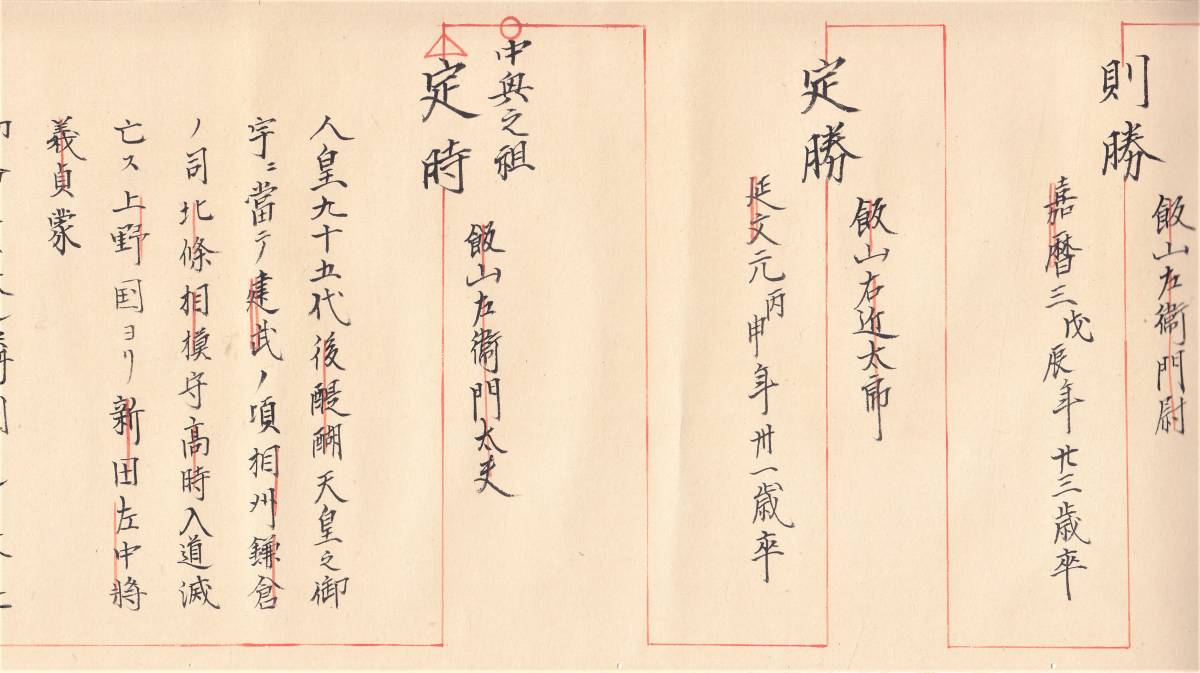 飯山左衞門尉
則勝
嘉暦三戊辰年廿三歳卒
飯山右近太帘
定勝
延文元丙申年卅一歳卒
中興之祖
飯山左衞門太夫
定時
人皇九十五代後醍醐天皇之御
宇ニ當テ建武ノ頃相州鎌倉
ノ司北條相摸守高時入道滅
亡ス上野国ヨリ新田左中將
義貞蒙